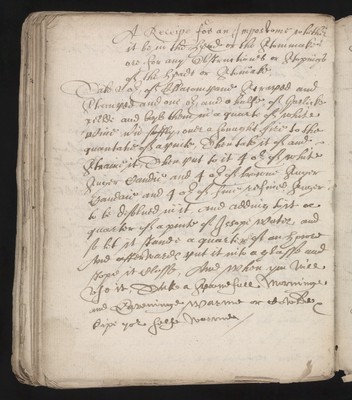 A Receipt for an Impostome whether
it be in the Head or the Stommake
ore for any Obstructions or Stoppings
of the Heart or Stomak
Take of Ellicompane scraped and
stamped and one oz and a halfe of
and boyle them in a quart of white
wine over a fire to the
quantitie of a pinte Then take it of and
straine it Then put to it 4 oz of white
Suger Candie and 4 oz of browne Suger
Candie and 4 oz of fine refined Suger
to be desolved in it and adding to it a
quarter of a pinte of water and
so let it stand a quarter of an howre
And afterwards put it into a glasse and
stope it close. And when you will
it Take a spoonefull Morninge
and Eveninge warme
kepe yor selfe warme